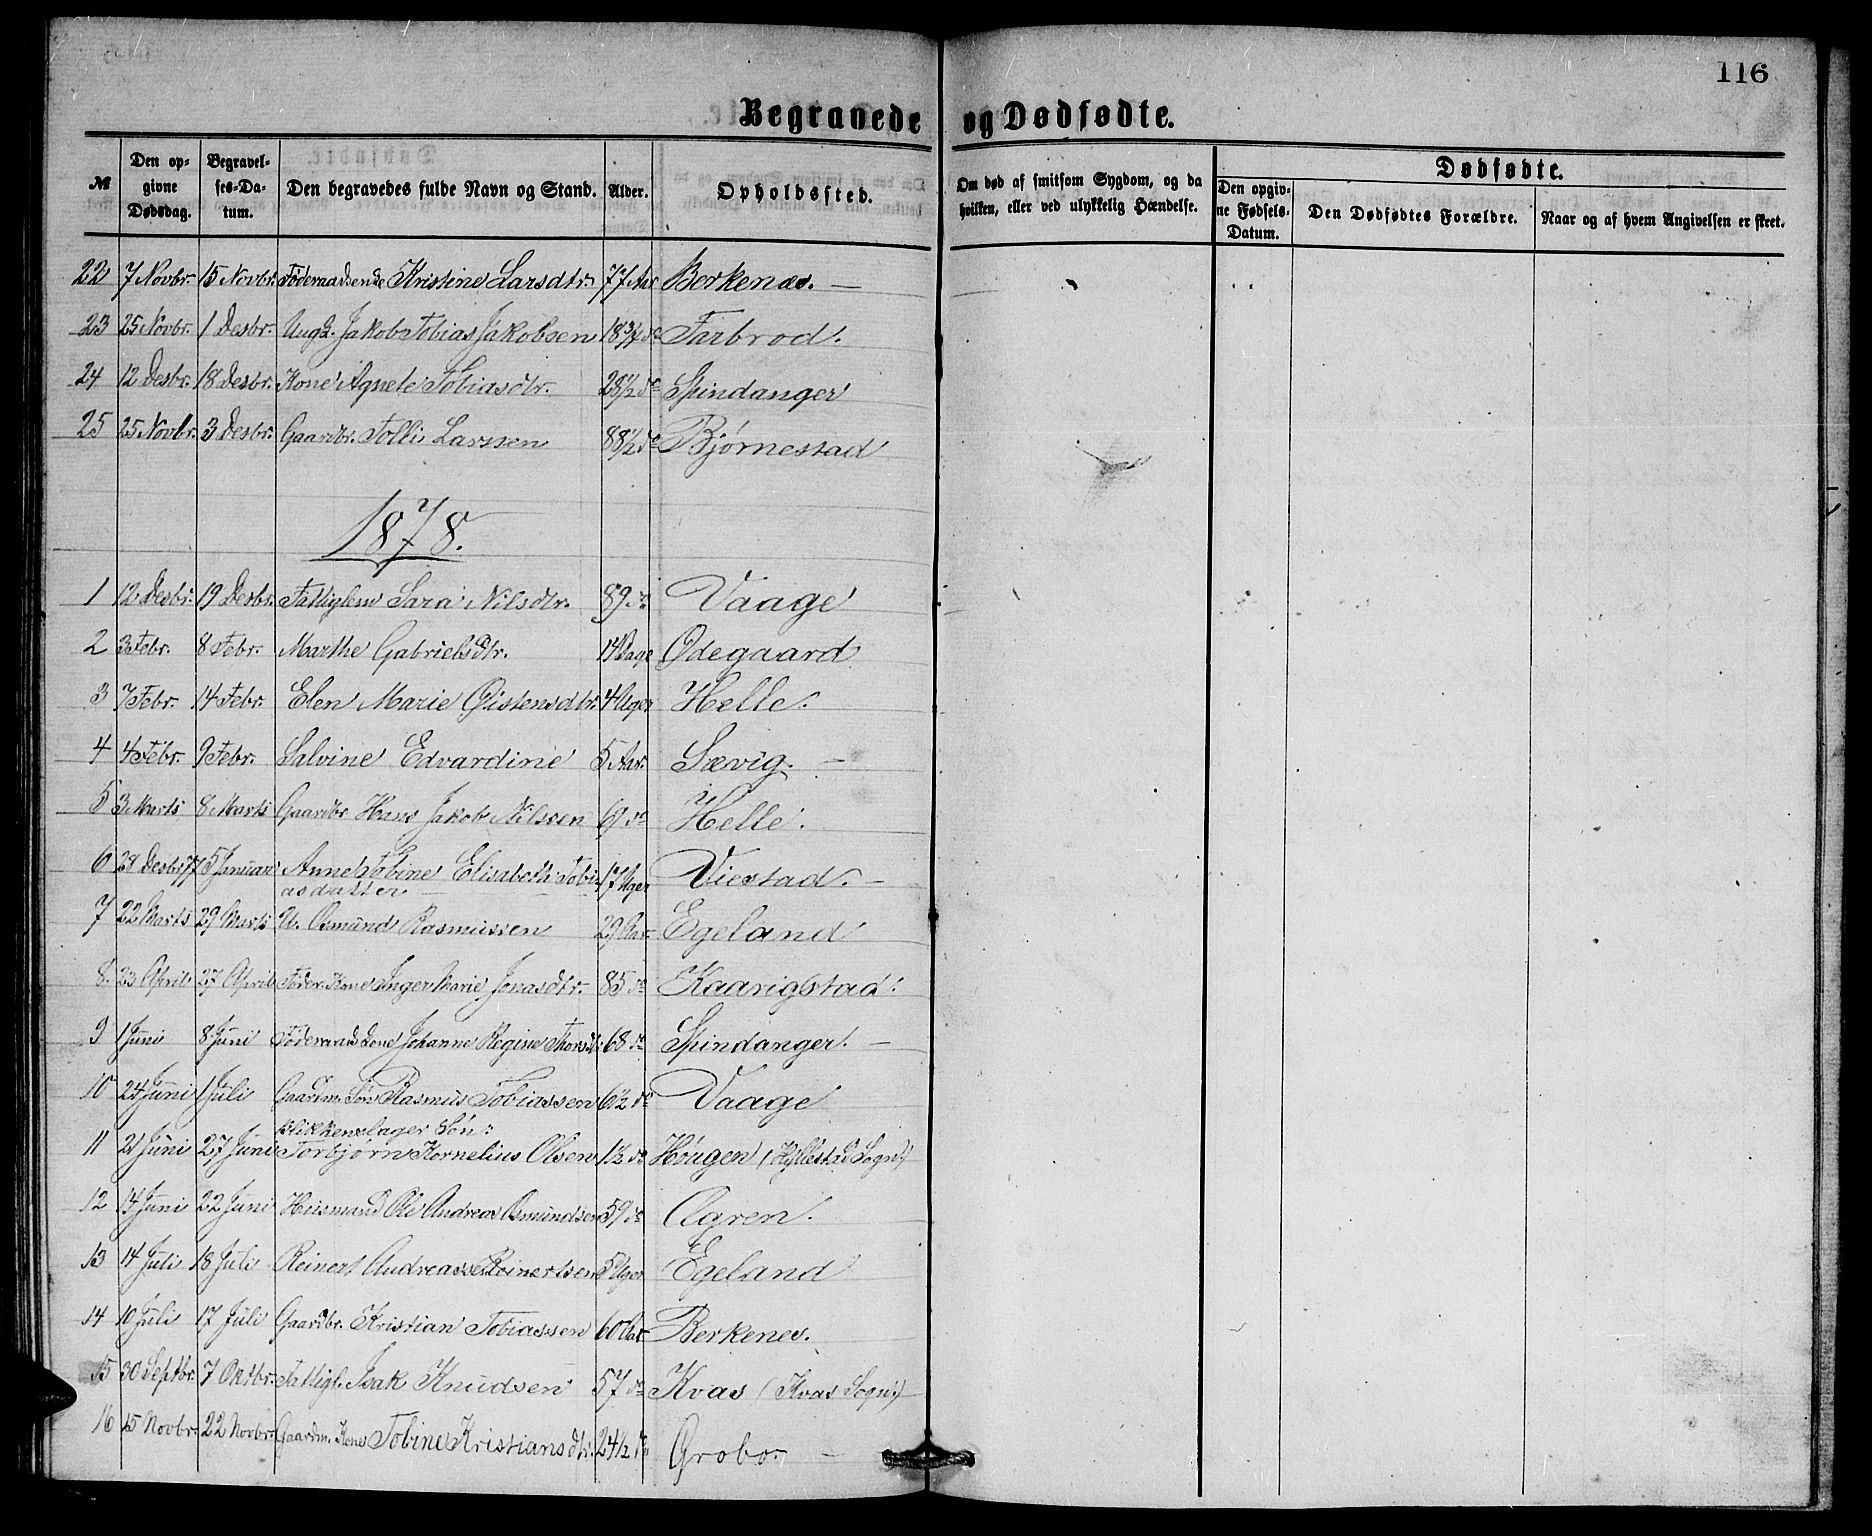 116
Begravede og Dødfødte.
№ Den opgivne Dødsdag. Begravelses-Datum. Den begravedes fulde Navn og Stand. Alder. Opholdssted. Om død af smitsom Sygdom, og da hvilken, eller ved ulykkelig Hændelse. Dødfødte.
Den opgivne Fødsels-Datum. Den Dødfødtes Forældre. Naar og af hvem Angivelsen er skeet.
22 7 Novbr. 15 Novbr. Kristine Larsdtr. 77 Aar Berkenæs. —
23 25 Novbr. 1 Desbr. Ungk. Jakob Tobias Jakobsen 18 3/4 do Farbrod.
24 12 Desbr. 18 Desbr. Kone Agnete Tobiasdtr. 28 1/2 do Spindanger
25 25 Novbr. 3 Desbr. Gaardbr. Tolli Larssen 88 1/2 do Bjørnestad
1878.
1 12 Desbr. 19 Desbr. Fattiglem Sara Nilsdtr. 89 do Vaage
2 3 Febr. 8 Febr. Marthe Gabrielsdtr. 14 Dage Ødegaard
3 7 Febr. 14 Febr. Elen Marie Øistensdtr. 4 Uger Helle.
4 4 Febr. 9 Febr. Salvine Edvardine 5 Aar. Sævig. —
5 3 Marts 8 Marts Gaardbr. Hans Jakob Nilssen 69 do Helle.
6 28 Desbr 77 5 Januar Anne Tobine Elisabeth Tobiasdatter 17 Uger Viestad. —
7 22 Marts 29 Marts U. Osmund Rasmussen 29 Aar. Egeland
8. 23 April 27 April Føder. Kone Inger Marie Jonasdtr. 85 do Kaarigstad.
9 1 Juni 8 Juni Føderaads Kone Johanne Regine 68 do Spindanger. —
10 24 Juni 1 Juli Gaardm. Søn Rasmus Tobiassen 6 1/2 do Vaage
11 21 Juni 27 Juni Blikkenslager Søn: Torbjørn Kornelius Olsen 1 1/2 do Hougen (Hyllestad Sogn)
12 14 Juni 22 Juni Husmand Ole Andreas Osmundsen 59 do Agren.
13 14 Juli 18 Juli Reinert Andreas Reinertsen 5 Uger Egeland
14 10 Juli 17 Juli Gaardbr. Kristian Tobiassen 60 Aar. Berkenes.
15 30 Septbr. 7 Oktbr. Fattigl. Isak Knudsen 57 do Kvas (Kvas Sogn)
16 15 Novbr. 22 Novbr. Gaardm. Kone Tobine Kristiansdtr. 24 1/2 do Grobo. —